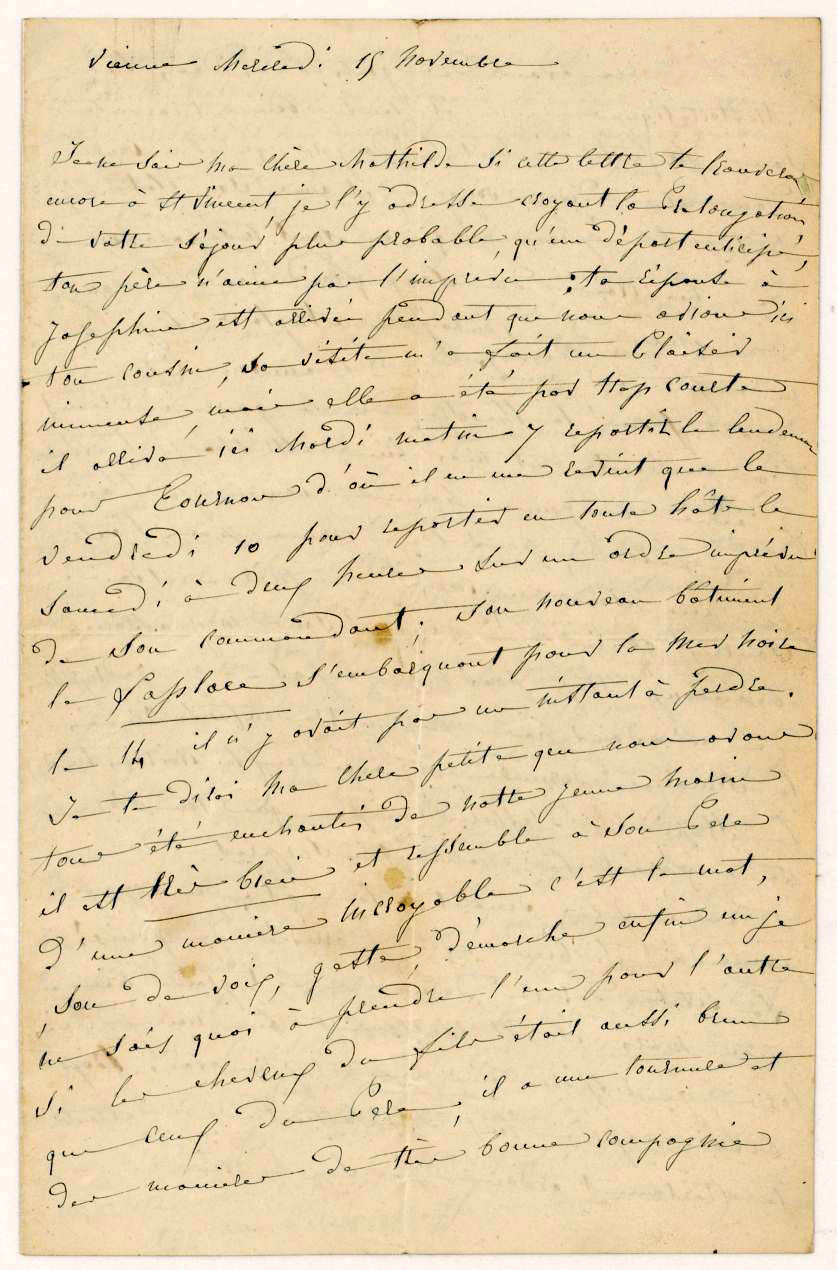 Vienne Mercredi 15 Novembre
Je ne sais ma chère Mathilde si cette lettre te trouvera
encore à St Vincent je l'y adresse croyant la Prolongation
de votre séjour plus probable qu'un départ anticipé,
ton père n'aime pas l'imprévu ; ta réponse à
Josephine est arrivée pendant que nous avions ici
ton cousin, sa visite m'a fait un Plaisir
immense, mais elle a été par trop courte
il arriva ici Mardi matin y repartir le lendemain
pour Tournon d'où il ne me revint que le
vendredi 10 pour repartir en toute hâte le
Samedi à deux heures sur un ordre imprévu
de son commandant ; son nouveau bâtiment
le Laplace s'embarquant pour la Mer noire
le 14 il n'y avait pas un instant à perdre.
Je te dirai ma chère petite que nous avons
tous été enchantés de notre jeune marin
il est très bien et ressemble à son Pere
d'une maniere incroyable c'est le mot,
son de voix, geste démarche enfin un je
ne sais quoi à prendre l'un pour l'autre
si les cheveux du fils était aussi brun
que ceux du Pere, il a une tournure et
des manieres de très bonne compagnie